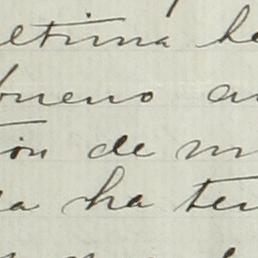 ltima he
bueno a
ión de m
a ha ten